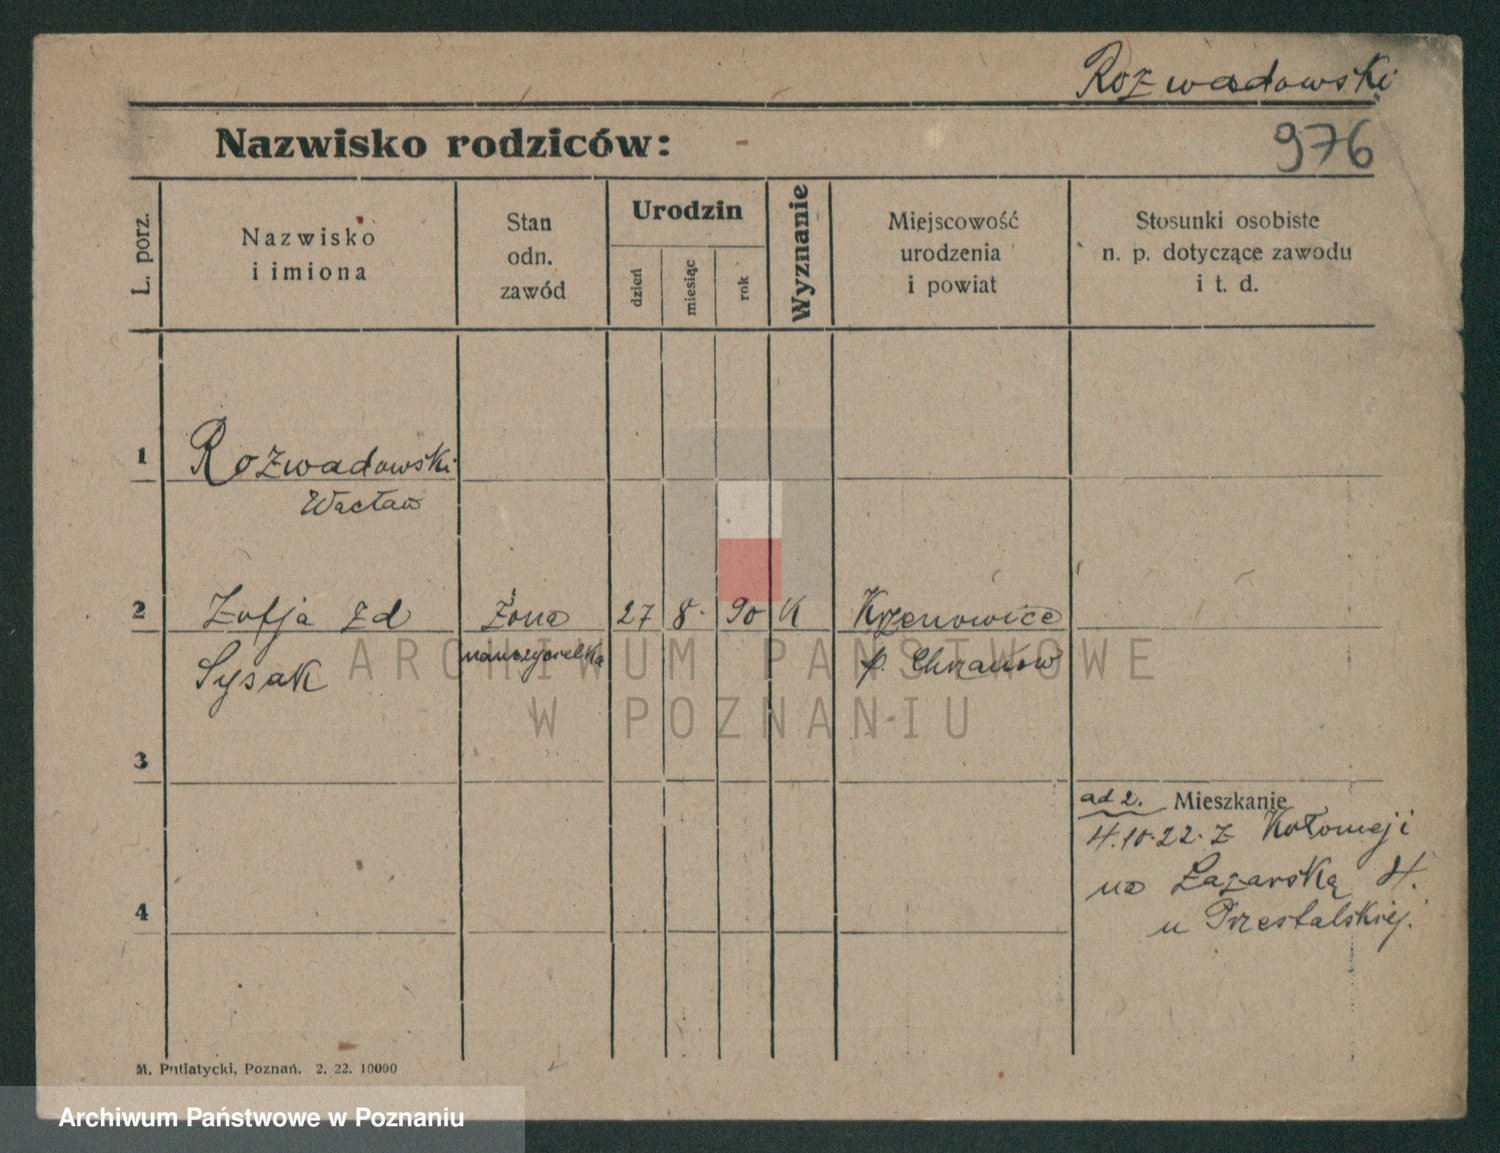 Rozwadowski
Nazwisko rodziców:
976
L. porz.
Nazwisko
i imiona
Stan
odn.
zawód
Urodzin
dzień
miesiąc
rok
Wyznanie
Miejscowość
urodzenia
i powiat
Stosunki osobiste
n. p. dotyczące zawodu
i t. d.
1 Rozwadowski
Wacław
2 Zofja zd żona 27 8. 90 K Krzenowice
Sysak nauczycielka p. Chrzanów
ARCHIWUM PAŃSTWOWE
W POZNANIU
3
ad 2. Mieszkanie
4.10.22. z Kołomeji
na Łazarską 4.
u Przestalskiej.
4
M. Putiatycki, Poznań. 2. 22. 10000
Archiwum Państwowe w Poznaniu